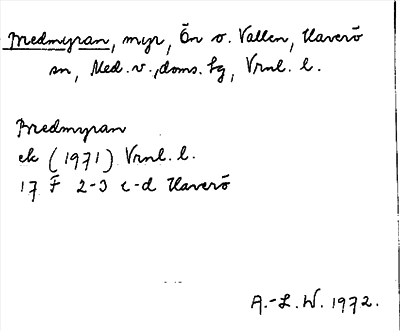 Bredmyran, myr, Ön o. Vallen, Haverö
sn, Med. v., doms. sg, Vrnl. l.
Bredmyran
ek (1971) Vrnl. l.
17 F 2-3 c-d Haverö
A.-L. W. 1972.